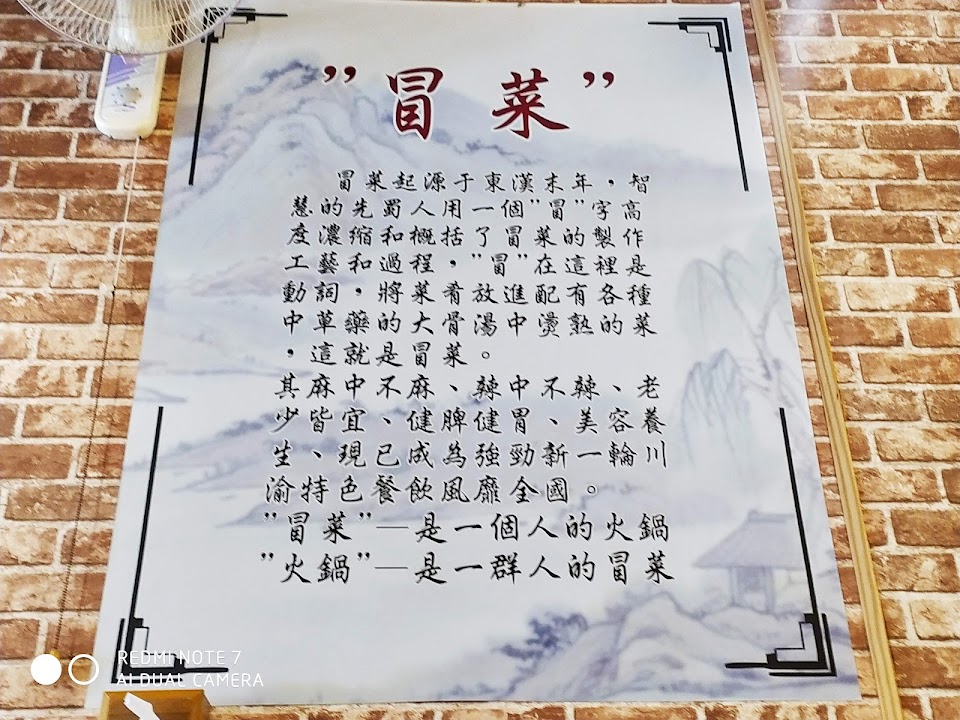 ”冒菜”
冒菜起源于東漢末年，智
慧的先蜀人用一個”冒”字高
度濃缩和概括了冒菜的製作
工藝和過程，”冒”在這裡是
動詞，將菜肴放進配有各種
中草藥的大骨湯中燙熟的菜
，這就是冒菜。
其麻中不麻、辣中不辣、老
少皆宜、健脾健胃、美容養
生、現已成為強勁新一輪川
渝特色餐飲風靡全國。
”冒菜”—是一個人的火鍋
”火鍋”—是一群人的冒菜
REDMI NOTE 7
AI DUAL CAMERA